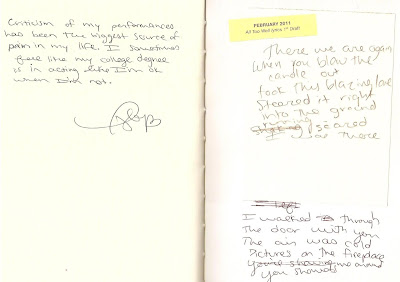 Criticism of my performances
has been the biggest source of
pain in my life. I sometimes
feel like my college degree
is in acting like I'm ok
when I'm not.
FEBRUARY 2011
All Too Well lyrics 1st Draft
There we are again
when you blow the
candle out
took this blazing love
Steared it right
into the ground
running
scared
I was there
I walked through
The door with you
The air was cold
Pictures on the fireplace
you're showing me around
you showed